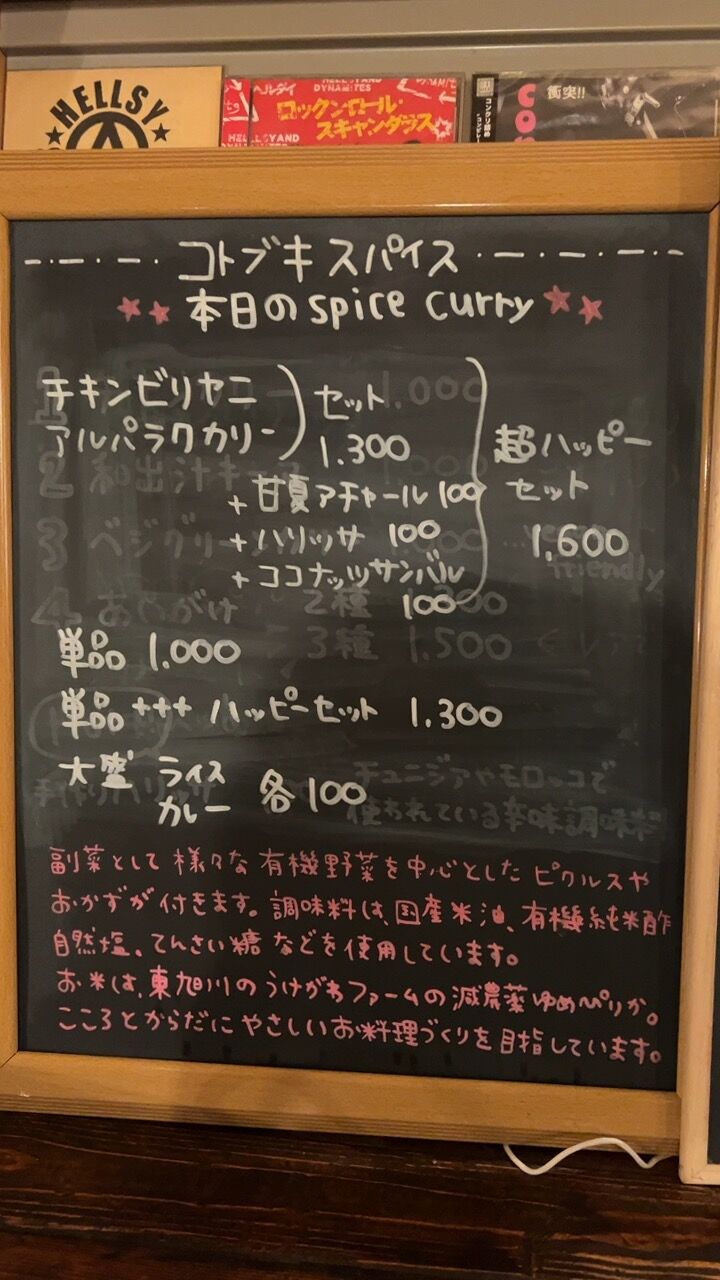 HELLSY
ヘルダイ
HELLSYAND
DYNAMITES
ロックンロール・
スキャンダラス
HELLSYAND
衝突!!
コンクリ詰め
コトブキスパイス
本日のspice curry
チキンビリヤニ
アルパラクカリー
セット
1.300
+甘夏アチャール 100
+ハリッサ 100
+ココナッツサンバル
100
超ハッピー
セット
1,600
単品 1.000
単品+++ ハッピーセット 1.300
大盛 ライス
カレー 各100
副菜として様々な有機野菜を中心としたピクルスや
おかずが付きます。調味料は、国産米油、有機純米酢
自然塩、てんさい糖などを使用しています。
お米は、東旭川のうけがわファームの減農薬ゆめぴりか。
こころとからだにやさしいお料理づくりを目指しています。